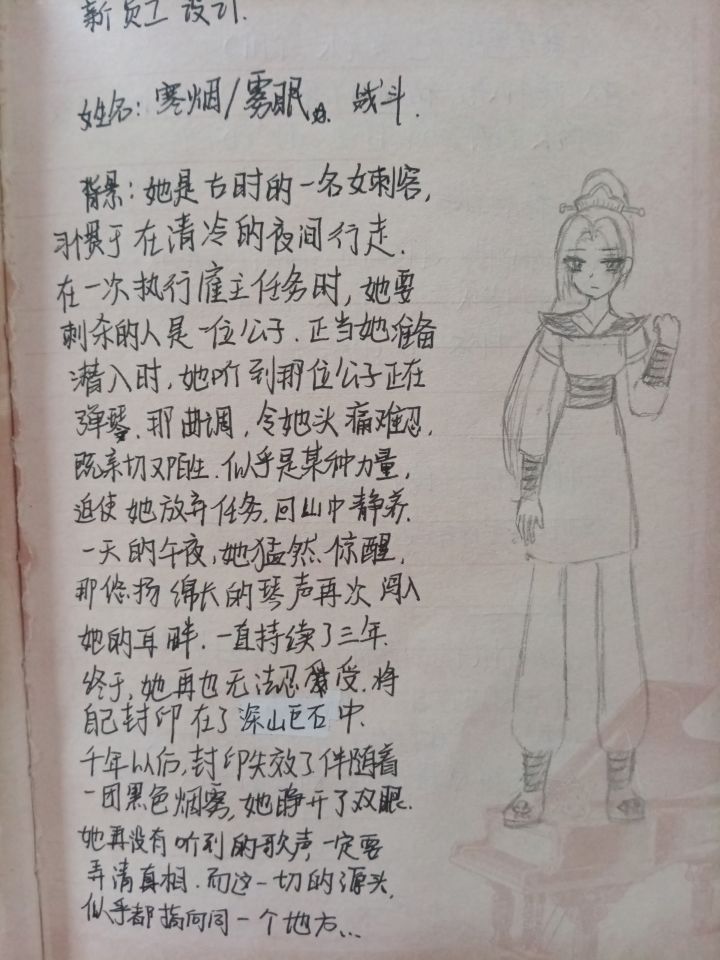 新员工设计.
姓名:寒烟/雾眠 女. 战斗.
背景:她是古时的一名女刺客,
习惯于在清冷的夜间行走.
在一次执行雇主任务时,她要
刺杀的人是一位公子.正当她准备
潜入时,她听到那位公子正在
弹琴.那曲调,令她头痛难忍,
既亲切又陌生.似乎是某种力量,
迫使她放弃任务.回山中静养.
一天的午夜,她猛然惊醒,
那悠扬绵长的琴声再次闯入
她的耳畔.一直持续了三年.
终于,她再也无法忍受.将
自己封印在了深山巨石中.
千年以后,封印失效了伴随着
一团黑色烟雾,她睁开了双眼.
她再没有听到的歌声,一定要
弄清真相.而这一切的源头,
似乎都指向同一个地方...